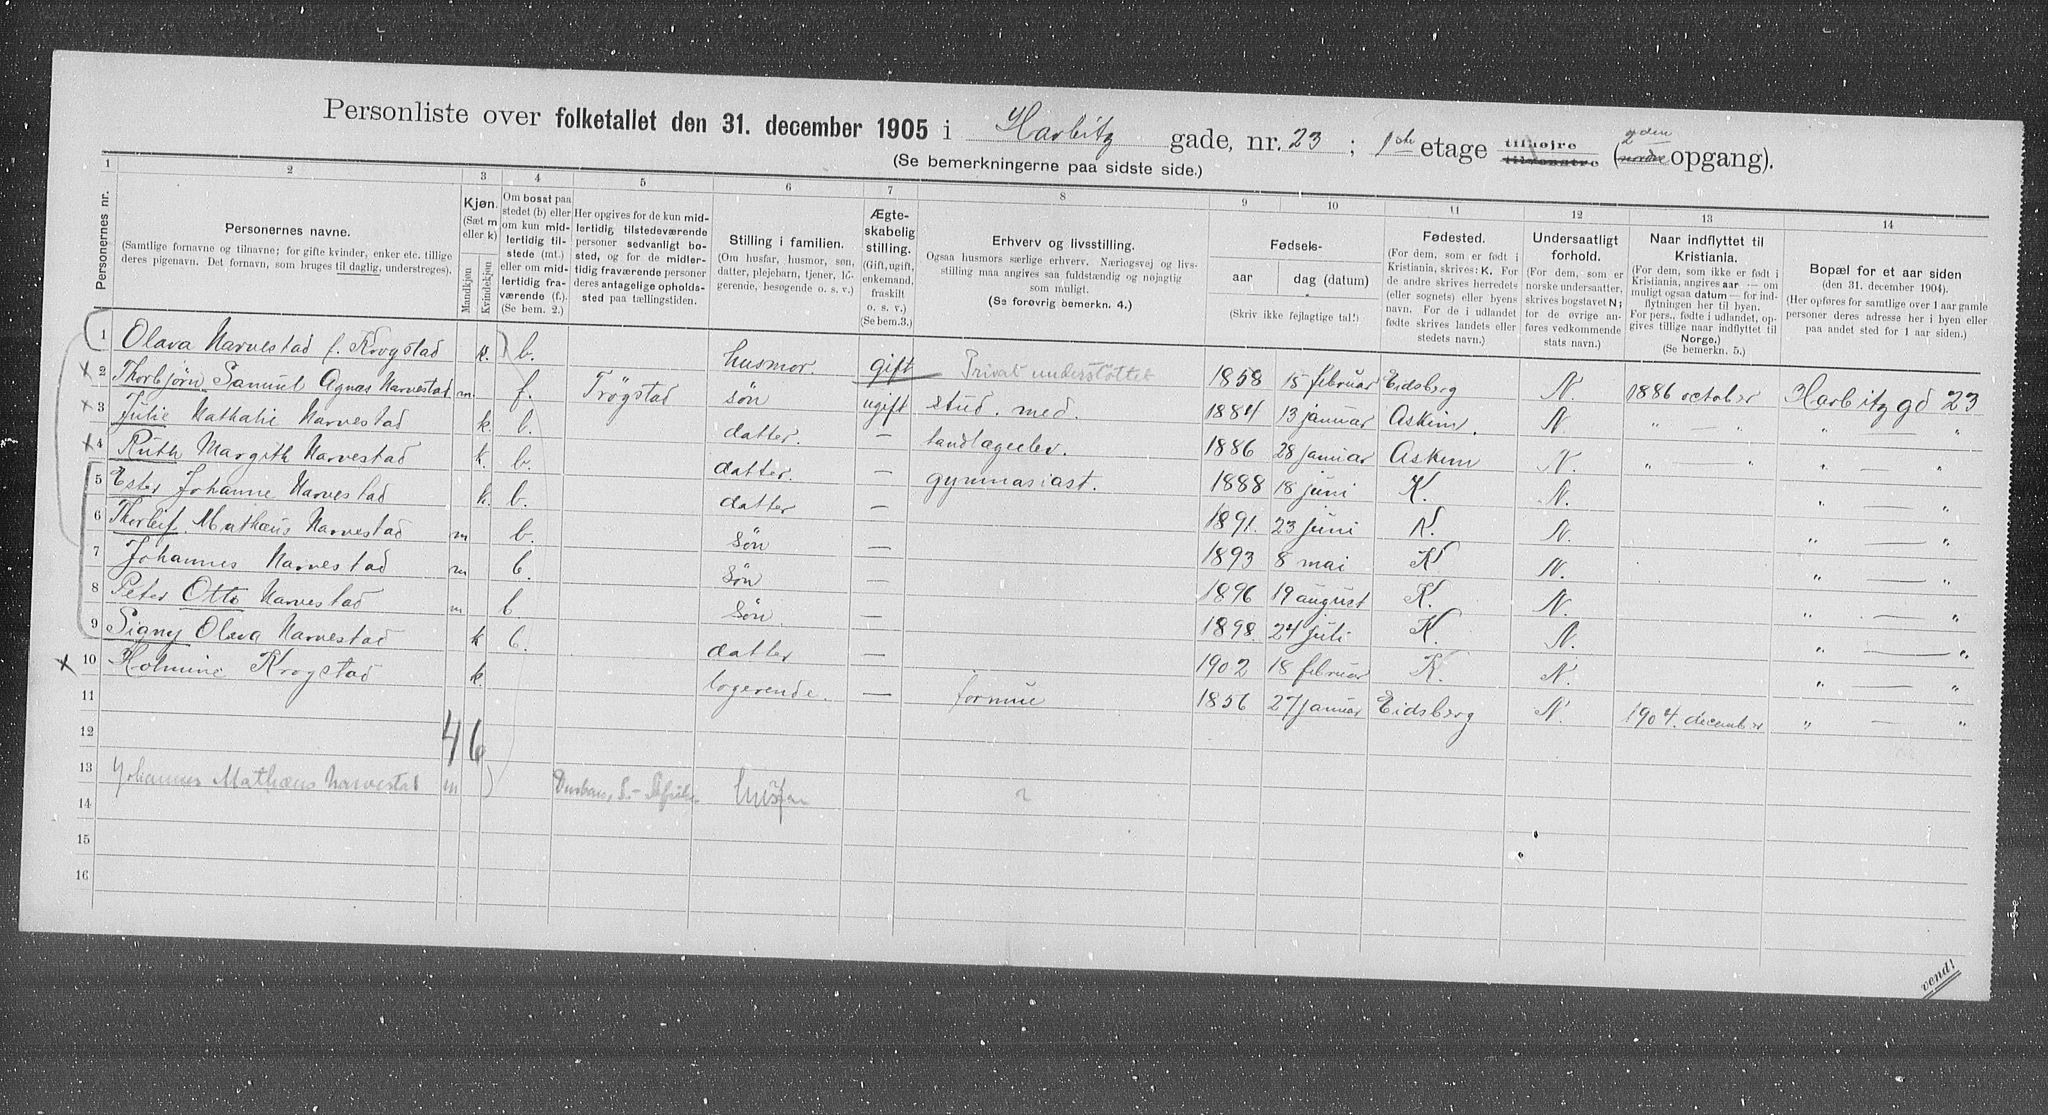 Personliste over folketallet den 31. december 1905 i Harbitz gade, nr. 23 ; 1ste etage tilhøjre tilvenstre (2den nordre opgang).
(Se bemerkningerne paa sidste side.)
1 2 3 4 5 6 7 8 9 10 11 12 13 14
Personernes nr.
Personernes navne.
(Samtlige fornavne og tilnavne; for gifte kvinder, enker etc. tillige deres pigenavn. Det fornavn, som bruges til daglig, understreges).
Kjøn.
(Sæt m eller k)
Mandkjøn
Kvindekjøn
Om bosat paa stedet (b) eller om kun midlertidig tilstede (mt.) eller om midlertidig fraværende (f.). (Se bem. 2.)
Her opgives for de kun midlertidig tilstedeværende personer sedvanligt bosted, og for de midlertidig fraværende personer deres antagelige opholdssted paa tællingstiden.
Stilling i familien.
(Om husfar, husmor, søn, datter, plejebarn, tjener, logerende, besøgende o. s. v.)
Ægteskabelig stilling.
(Gift, ugift, enkemand, fraskilt o. s. v.)
(Se bem. 3.)
Erhverv og livsstilling.
Ogsaa husmors særlige erhverv. Næringsvej og livsstilling maa angives saa fuldstændig og nøjagtig som muligt.
(Se forøvrig bemerkn. 4.)
Fødsels-
aar dag (datum)
(Skriv ikke fejlagtige tal!)
Fødested.
(For dem, som er født i Kristiania, skrives: K. For de andre skrives herredets (eller sognets) eller byens navn. For de i udlandet fødte skrives landets eller stedets navn.)
Undersaatligt forhold.
(For dem, som er norske undersaatter, skrives bogstavet N; for de øvrige anføres vedkommende stats navn.)
Naar indflyttet til Kristiania.
(For dem, som ikke er født i Kristiania, angives aar — om muligt ogsaa datum — for indflytningen her til byen. For pers., fødte i udlandet, opgives tillige naar indflyttet til Norge.)
(Se bemerkn. 5.)
Bopæl for et aar siden
(den 31. december 1904.)
(Her opføres for samtlige over 1 aar gamle personer deres adresse her i byen eller paa andet sted for 1 aar siden.)
1 Olava Narvestad f. Krogstad k. b. husmor. gift Privat understøttet 1858 15 februar Eidsberg N. 1886 october Harbitz gd 23
x 2 Thorbjørn Samuel Agnas Narvestad m. f. Trøgstad søn ugift stud. med. 1884 13 januar Askim. N. " — " " — "
x 3 Julie Nathalie Narvestad k. b. datter. — landlageelev. 1886 28 januar Askim N. " — " " — "
x 4 Ruth Margith Narvestad k. b. datter. — gymnasiast. 1888 18 juni K. N. " — "
5 Ester Johanne Narvestad k. b. datter — 1891. 23 juni K. N. " — "
6 Thorleif Mathæus Narvestad m b. søn — 1893 8 mai K N. " — "
7 Johannes Narvestad m b. søn — 1896 19 august K. N. " — "
8 Peter Otto Narvestad m b søn. — 1898. 24 juli K N. " — "
9 Signy Olava Narvestad k b. datter — 1902 18 februar K. N. " — "
x 10 Holmine Krogstad k. logerende. — formue 1856 27 januar Eidsberg N. 1904. december " — "
11
12 4 6
13 Johannes Mathæus Narvestad m Durban, S.-Afrika husfar
14
15
16
vend!